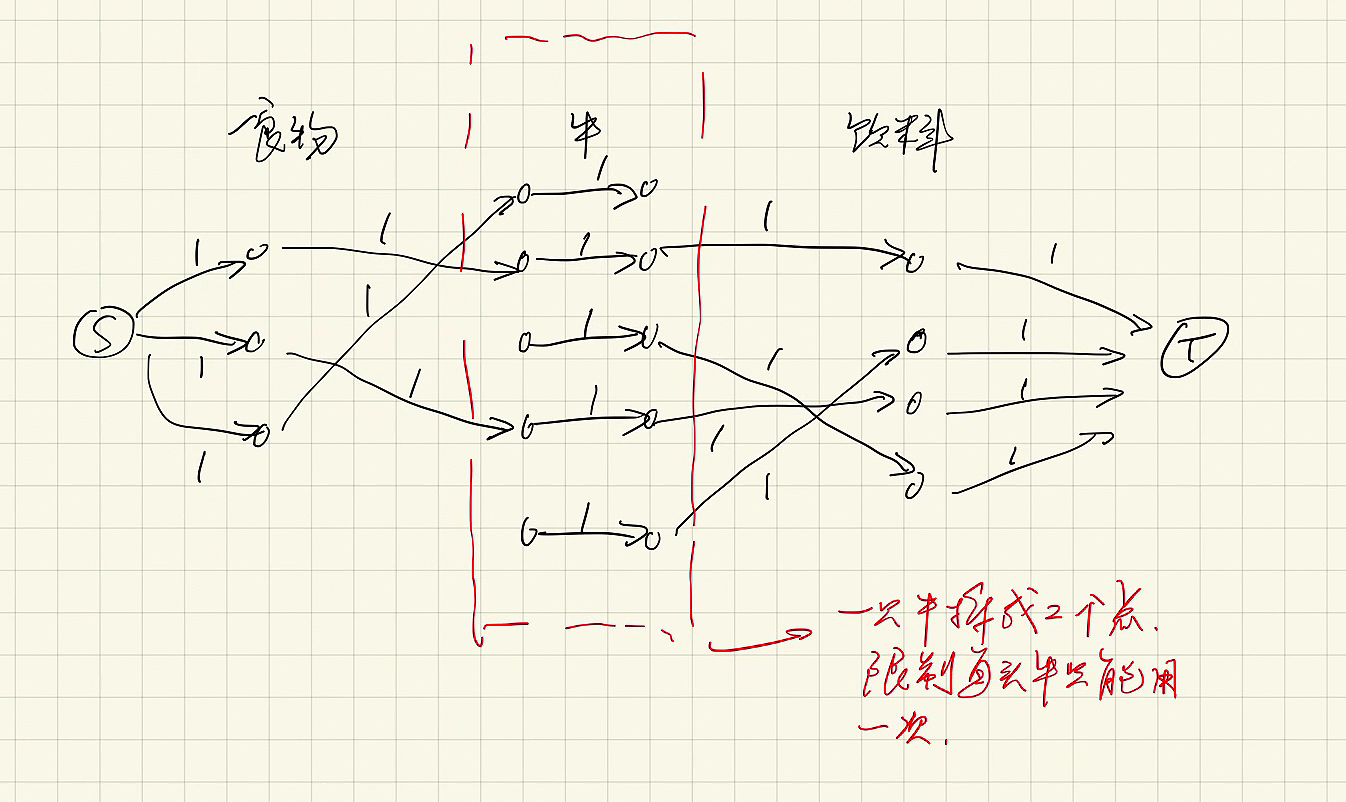 食物 牛 饮料
1
1 1 1 1 1
S 1 1 1 1 1 T
1 1 1 1
1 1 1 1 1
1
一只牛拆成2个点.
限制每头牛只能用
一次.